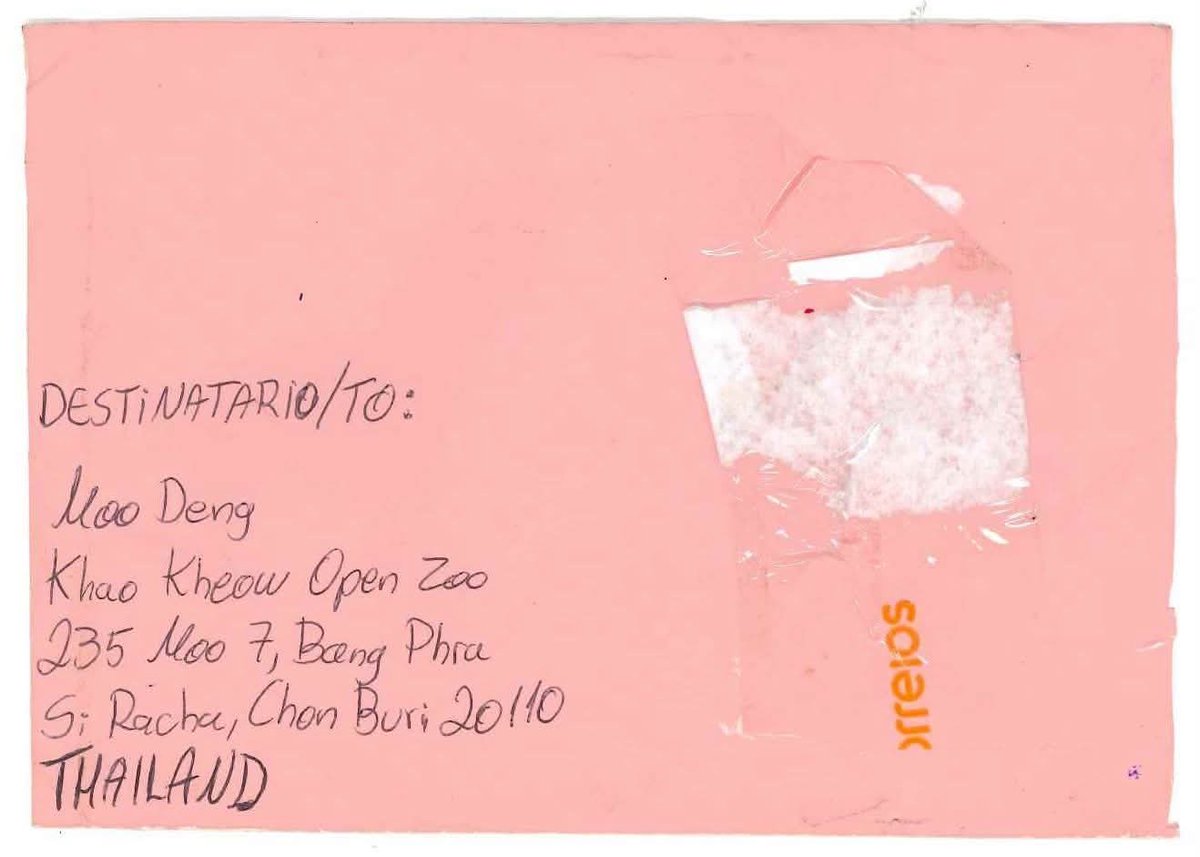 DESTINATARIO/TO:
Moo Deng
Khao Kheow Open Zoo
235 Moo 7, Bang Phra
Si Racha, Chon Buri 20110
THAILAND
orreios